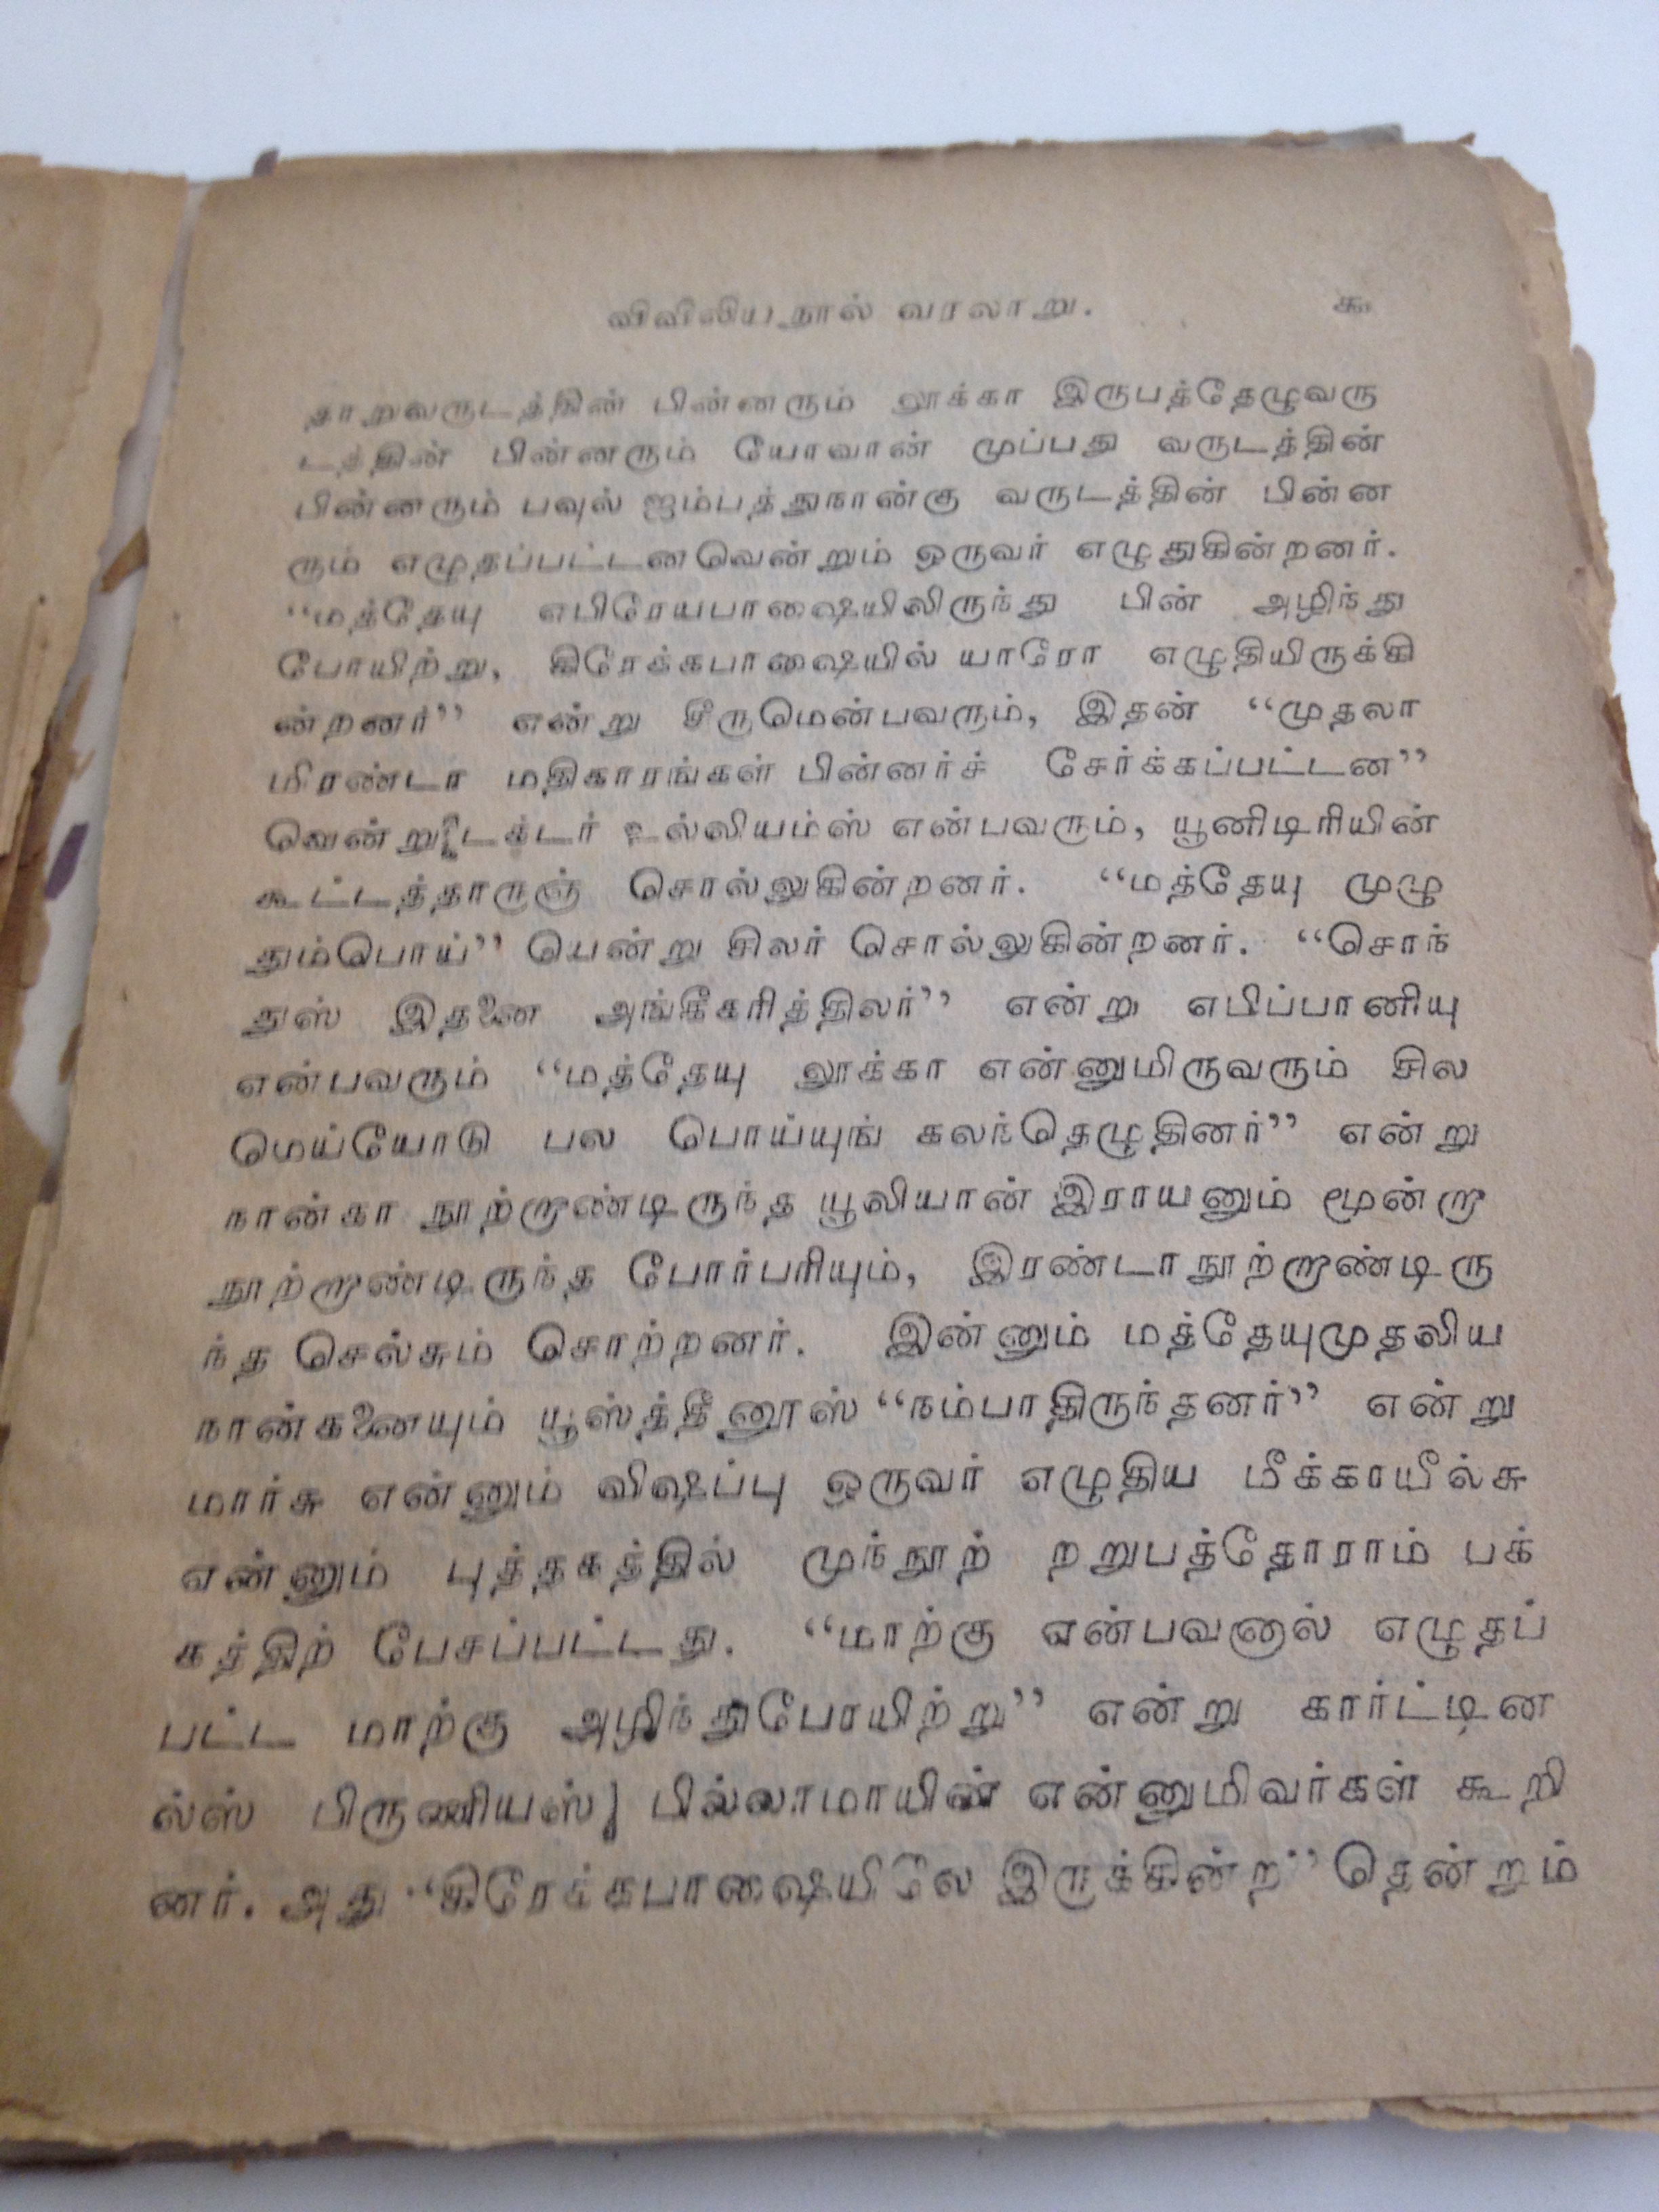 விவிலியநூல் வரலாறு. ௯
தாறுவருடத்தின் பின்னரும் லூக்கா இருபத்தேழுவரு
டத்தின் பின்னரும் யோவான் முப்பது வருடத்தின்
பின்னரும் பவுல் ஐம்பத்துநான்கு வருடத்தின் பின்ன
ரும் எழுதப்பட்டனவென்றும் ஒருவர் எழுதுகின்றனர்.
“மத்தேயு எபிரேயபாஷையிலிருந்து பின் அழிந்து
போயிற்று, கிரேக்கபாஷையில் யாரோ எழுதியிருக்கி
ன்றனர்” என்று சீருமென்பவரும், இதன் “முதலா
மிரண்டா மதிகாரங்கள் பின்னர்ச் சேர்க்கப்பட்டன”
வென்று டக்டர் உல்லியம்ஸ் என்பவரும், யூனிடிரியின்
கூட்டத்தாருஞ் சொல்லுகின்றனர். “மத்தேயு முழு
தும்பொய்” யென்று சிலர் சொல்லுகின்றனர். “சொந்
துஸ் இதனை அங்கீகரித்திலர்” என்று எபிப்பானியு
என்பவரும் “மத்தேயு லூக்கா என்னுமிருவரும் சில
மெய்யோடு பல பொய்யுங் கலந்தெழுதினர்” என்று
நான்கா நூற்றாண்டிருந்த யூலியான் இராயனும் மூன்றா
நூற்றாண்டிருந்த போர்பரியும், இரண்டாநூற்றாண்டிரு
ந்த செல்சும் சொற்றனர். இன்னும் மத்தேயுமுதலிய
நான்கனையும் யூஸ்த்தீனூஸ் “நம்பாதிருந்தனர்” என்று
மார்சு என்னும் விஷப்பு ஒருவர் எழுதிய மீக்காயீல்சு
என்னும் புத்தகத்தில் முந்நூற் றறுபத்தோராம் பக்
கத்திற் பேசப்பட்டது. “மாற்கு என்பவனால் எழுதப்
பட்ட மாற்கு அழிந்துபோயிற்று” என்று கார்ட்டின
ல்ஸ் பிருணியஸ் பில்லாமாயின் என்னுமிவர்கள் கூறி
னர். அது “கிரேக்கபாஷையிலே இருக்கின்ற” தென்றும்